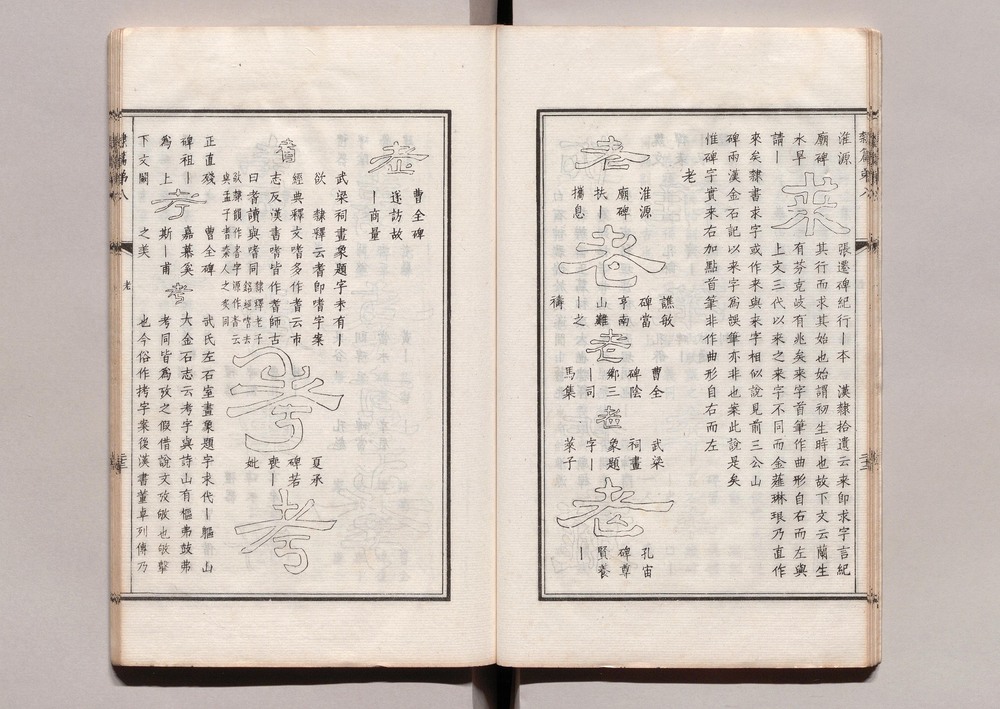 隸篇第八
淮源
廟碑
水旱
請丨
来
張遷碑紀行丨本 漢隸拾遺云来即求字言紀
其行而求其始也始謂初生時也故下文云蘭生
有芬克岐有兆矣来字首筆作曲形自右而左與
上文三代以来之来字不同而金薤琳琅乃直作
來矣隸書求字或作来與来字相似說見前三公山
碑兩漢金石記以来字為誤筆亦非也案此說是矣
惟碑字實来右加點首筆非作曲形自右而左
老
老
淮源
廟碑
扶丨
攜息
老
譙敏
碑當
亨南
山難
丨之
禱
老
曹全
碑陰
鄉三
丨司
馬集
老
武梁
祠畫
象題
字丨
萊子
老
孔宙
碑尊
賢養
丨
老
曹全碑
遂訪故
丨商量
耆
武梁祠畫象題字未有丨
欲 隸釋云耆即嗜字案
經典釋文嗜多作耆云市
志反漢書嗜皆作耆師古
曰耆讀與嗜同
隸釋老子銘絕嗜去
欲隸韻作耆字源作耆云
與孟子耆秦人之炙同
考
夏承
碑若
喪丨
妣
考
正直殘
碑祖丨
為上
下文闕
考
曹全碑
嘉慕奚
斯丨甫
之美
考
武氏左石室畫象題字求代丨軀 山
大金石志云考字與詩山有樞弗鼓弗
考同皆為攷之假借說文攷敂也敂擊
也今俗作拷字案後漢書董卓列傳乃
隸篇第八
老